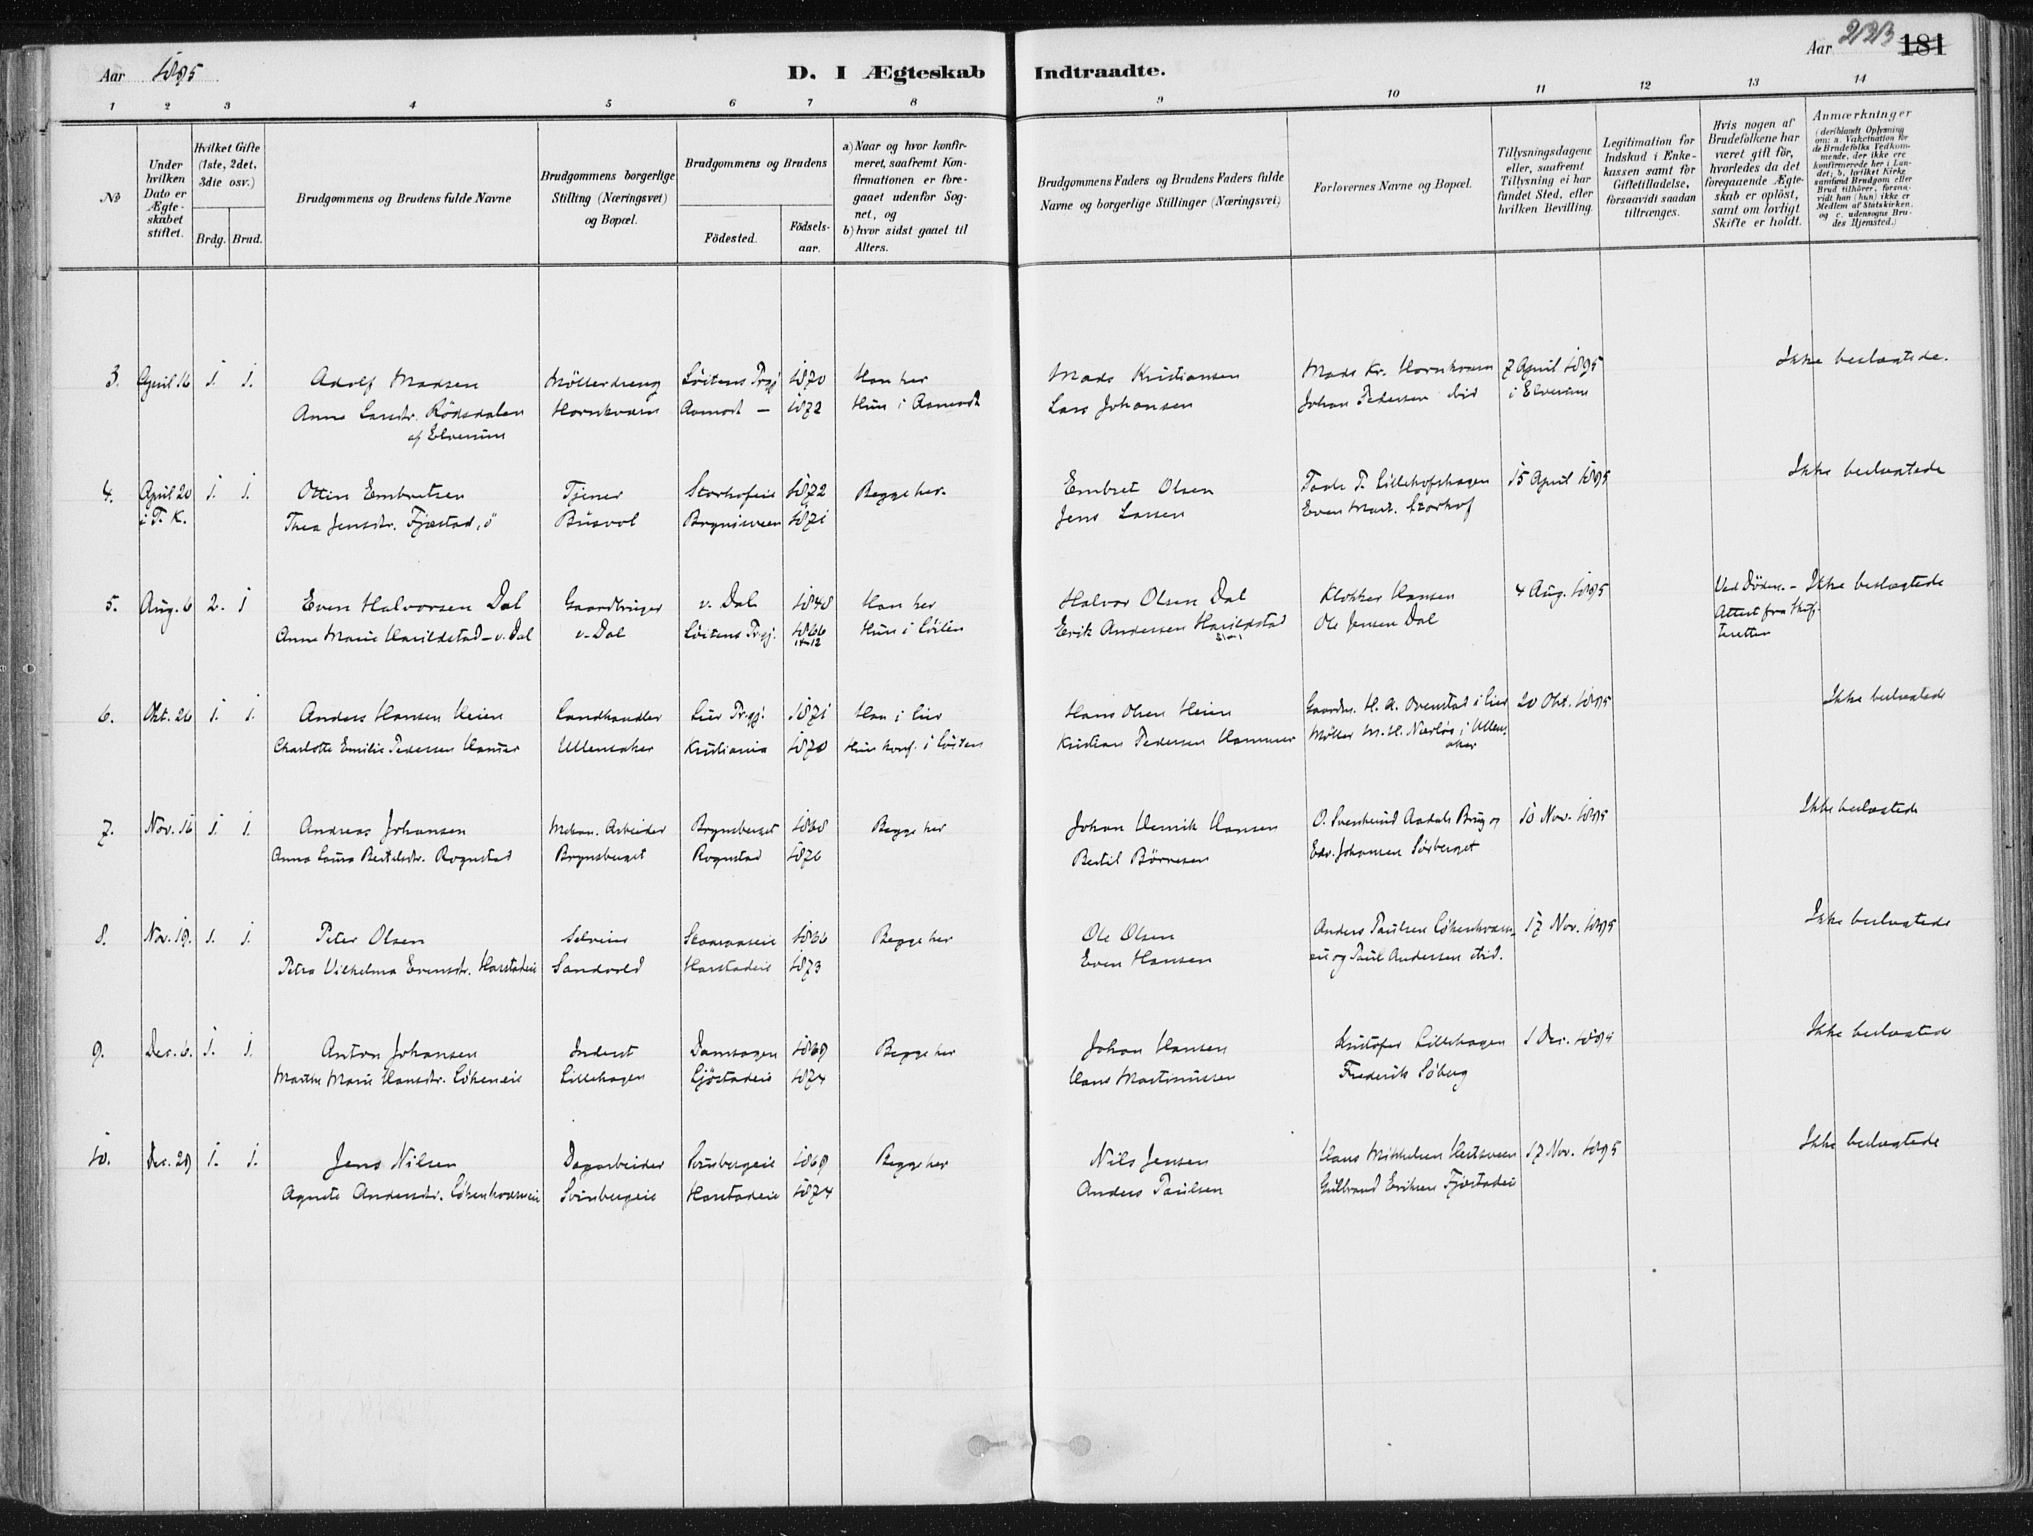 Aar 1895
D. I Ægteskab Indtraadte.
Aar 213 181
1 2 3 4 5 6 7 8 9 10 11 12 13 14
No
Under hvilken Dato er Ægteskabet stiftet.
Hvilket Gifte (1ste, 2det, 3die osv.)
Brdg. Brud.
Brudgommens og Brudens fulde Navne
Brudgommens borgerlige Stilling (Næringsvei) og Bopæl.
Brudgommens og Brudens
Födested.
Födsels-aar.
a) Naar og hvor konfirmeret, saafremt Konfirmationen er foregaaet udenfor Sognet, og
b) hvor sidst gaaet til Alters.
Brudgommens Faders og Brudens Faders fulde Navne og borgerlige Stillinger (Næringsvei)
Forlovernes Navne og Bopæl.
Tillysningsdagene eller, saafremt Tillysning ei har fundet Sted, efter hvilken Bevilling.
Legitimation for Indskud i Enkekassen samt for Giftetilladelse, forsaavidt saadan tiltrænges.
Hvis nogen af Brudefolkene har været gift för, hvorledes da det foregaaende Ægteskab er oplöst, samt om lovligt Skifte er holdt.
Anmærkninger
(deriblandt Oplysning om: a. Vakcination for de Brudefolks Vedkommende, der ikke ere konfirmerede her i Landet; b. hvilket Kirkesamfund Brudgom eller Brud tilhörer, forsaavidt han (hun) ikke er Medlem af Statskirken, og c. udensogns Brudes Hjemsted.)
3. April 16 1. 1. Adolf Madsen Möllerdreng Löitens Prgj 1870 Han her Mads Kristiansen Mads Kr. Hornkvæn 7 April 1895 Ikke beslægtede.
Anne Larsdr. Rödsdalen Hornkvæn Aamodt — 1872 Hun i Aamodt Lars Johansen Johan Pedersen ibid i Elverum
af Elverum
4. April 20 1. 1. Ottin Embretsen Tjener Storhofeie 1872 Begge her. Embret Olsen T. Lillehofshagen 15 April 1895 Ikke beslægtede
i T. K. Thea Jensdr. Fjæstad Busvol 1871 Jens Larsen Even Mart. Storhof
5. Aug. 6 2. 1 Even Halvorsen Dal Gaardbruger v. Dal 1840 Han her Halvor Olsen Dal Klokker Hansen 4 Aug. 1895 Ved Döden. – Ikke beslægtede
Anne Marie Harildstad – v. Dal v. Dal Löitens Prgj. 1866 Hun i Löiten Erik Andersen Harildstad Ole Jensen Dal Attest fra Skifteretten
6. Okt. 26 1. 1. Anders Hansen Heien Landhandler Lier Prgj. 1871 Han i Lier Hans Olsen Heien Gaardbr. H. A. Ovenstad i Lier 20 Okt. 1895 Ikke beslægtede
Charlotte Emilie Pedersen Hamar Ullensaker Kristiania 1870 Hun konf. i Löiten Kristian Pedersen Hammer Möller M. H. Nærlös i Ullensaker
7. Nov. 16 1. 1. Andreas Johansen Mekan. Arbeider Brynsberget 1868 Begge her Johan Henrik Hansen O. Svenkerud Aadals Brug og 10 Nov. 1895 Ikke beslægtede
Anna Laura Bertelsdr. Rognstad Brynsberget Rognstad 1876 Bertil Börresen Edv. Johansen Sörberget
8. Nov. 19. 1. 1. Peter Olsen Selveier 1866 Begge her Ole Olsen Anders Paulsen Lökenkvæn- 17 Nov. 1895 Ikke beslægtede
Petra Vilhelmina Evensdr. Harstadeie Sandvold Harstadeie 1873 Even Hansen eie og Paul Andersen ibid.
9. Dec. 6. 1. 1. Anton Johansen Inderst Damhagen 1869 Begge her Johan Hansen Kristofer Lillehagen 1 Dec. 1894 Ikke beslægtede
Marthe Marie Hansdr. Lökeneie Lillehagen Ljöstadeie 1874 Hans Martinussen Frederik Söberg
10. Dec. 29 1. 1. Jens Nilsen Dagarbeider Svinbergeie 1869 Begge her Nils Jensen Hans Mikkelsen 17 Nov. 1895 Ikke beslægtede
Agnete Andersdr. Lökenkvæneie Svinbergeie Harstadeie 1874 Anders Paulsen Gulbrand Eriksen Fjæstadeie